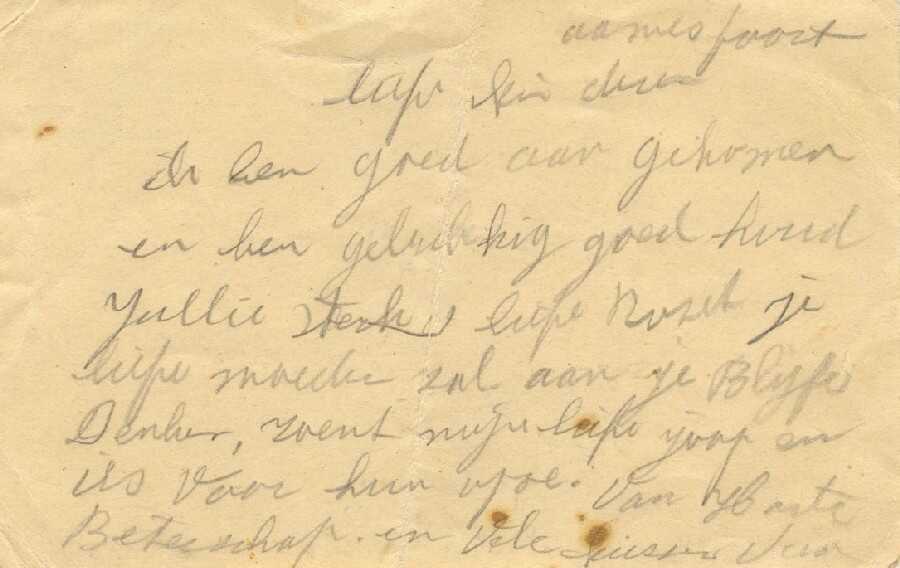 aamesfoort
liefe kinderen
Ik ben goed aan gekomen
en ben gelukkig goed houd
Jullie sterk liefe Rozet je
liefe moeder zal aan je Blijfe
Denken, zoent mijn liefe joop en
ies voor hun opoe. Van Harte
Beterschap. en Vele kussen Van